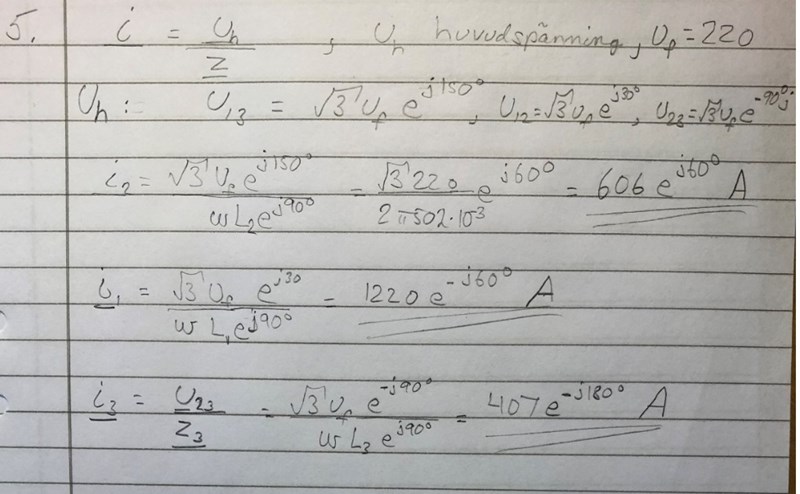 5. i = U_h / Z , U_h huvudspänning, U_f = 220
U_h : U_13 = √3 U_f e^j150° , U_12 = √3 U_f e^j30° , U_23 = √3 U_f e^-90°j
i_2 = √3 U_f e^j150° / wL_2 e^j90° = √3 220 / 2π502·10^-3 e^j60° = 606 e^j60° A
i_1 = √3 U_f e^j30 / wL_1 e^j90° = 1220 e^-j60° A
i_3 = U_23 / Z_3 = √3 U_f e^-j90° / wL_3 e^j90° = 407 e^-j180° A